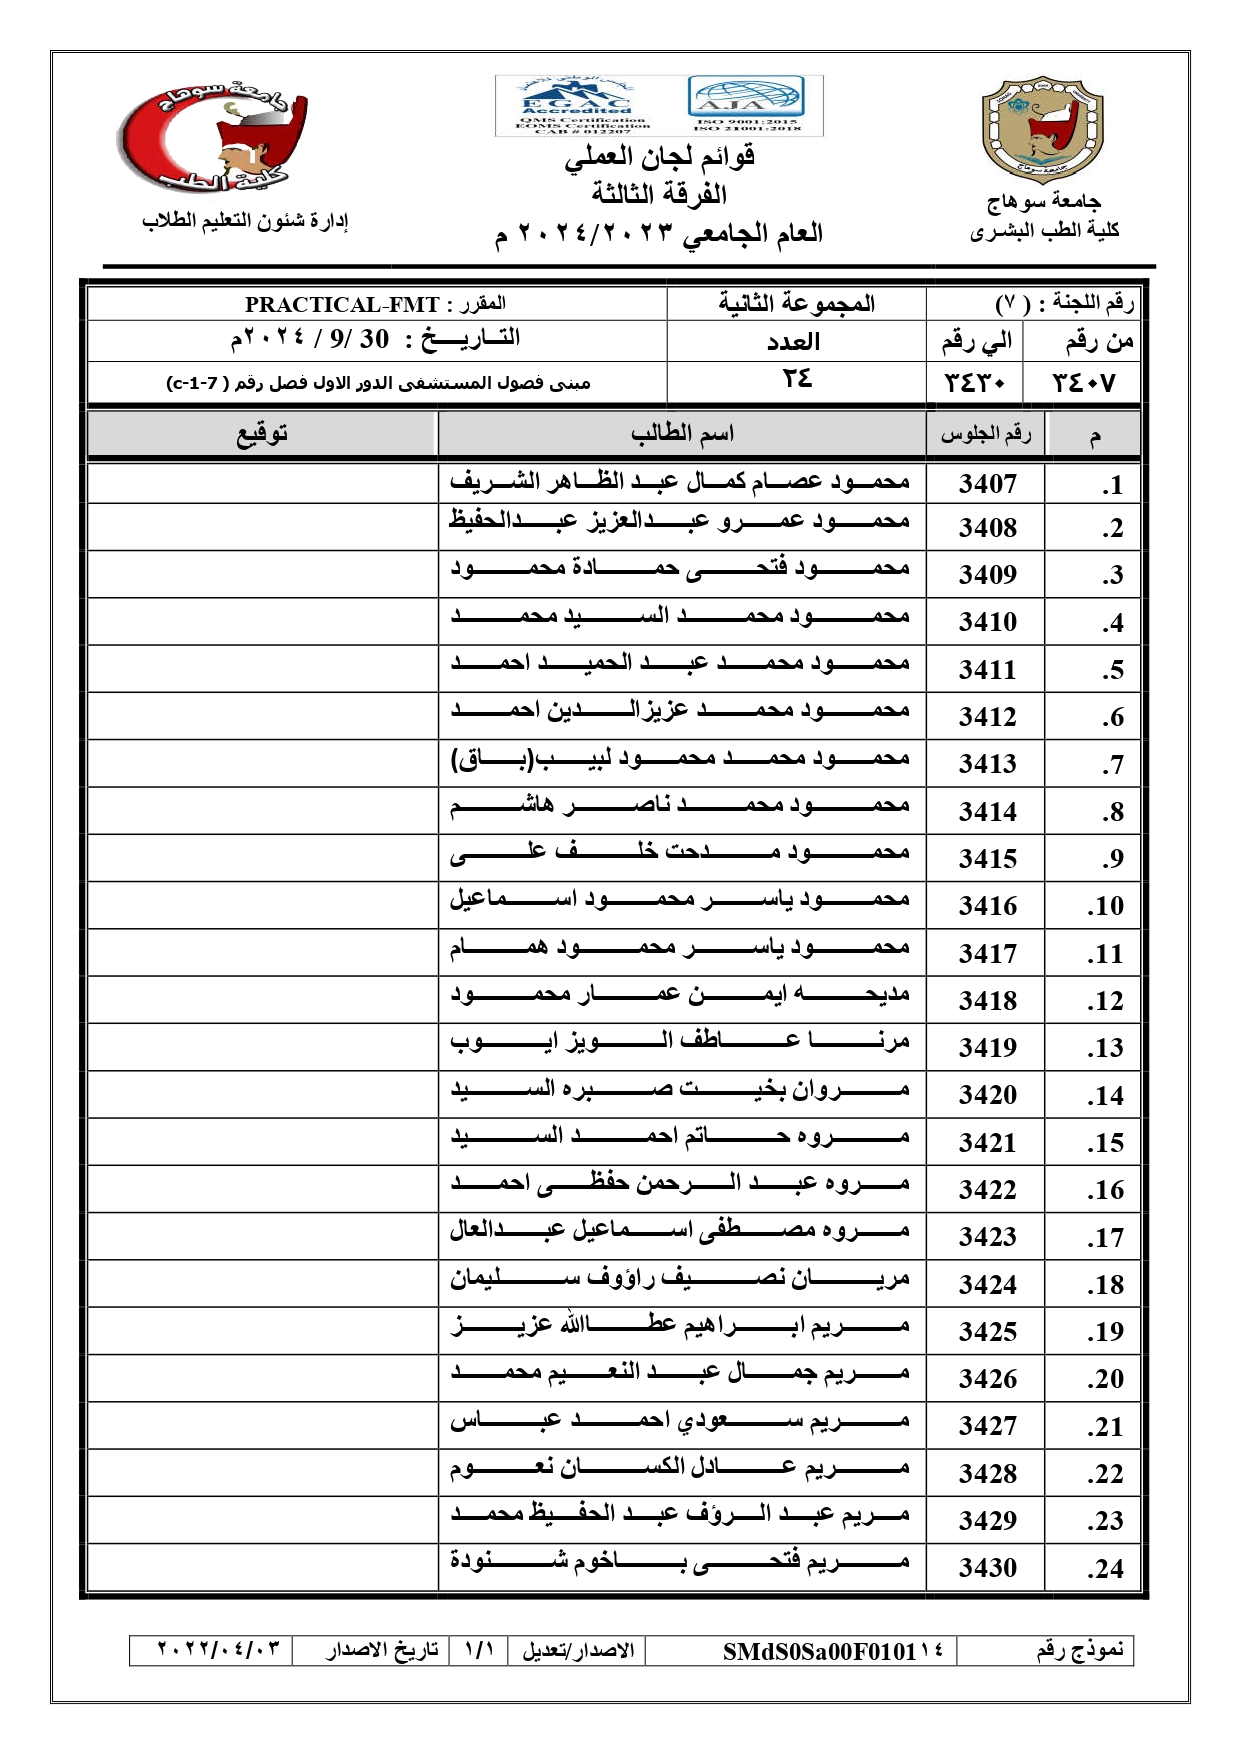 جامعة سوهاج
كلية الطب
إدارة شئون التعليم الطلاب
EGAC
Accredited
QMS Certification
EOMS Certification
CAB # 012207
AJA
ISO 9001:2015
ISO 21001:2018
قوائم لجان العملي
الفرقة الثالثة
العام الجامعي ٢٠٢٤/٢٠٢٣ م
جامعة سوهاج
جامعة سوهاج
كلية الطب البشرى
رقم اللجنة : ( ٧) المجموعة الثانية المقرر : PRACTICAL-FMT
من رقم الي رقم العدد التاريخ : 30 /9 / ٢٠٢٤م
٣٤٠٧ ٣٤٣٠ ٢٤ مبنى فصول المستشفى الدور الاول فصل رقم ( c-1-7)
م رقم الجلوس اسم الطالب توقيع
1. 3407 محمود عصام كمال عبد الظاهر الشريف
2. 3408 محمود عمرو عبدالعزيز عبدالحفيظ
3. 3409 محمود فتحى حمادة محمود
4. 3410 محمود محمد السيد محمد
5. 3411 محمود محمد عبد الحميد احمد
6. 3412 محمود محمد عزيزالدين احمد
7. 3413 محمود محمد محمود لبيب(باق)
8. 3414 محمود محمد ناصر هاشم
9. 3415 محمود مدحت خلف على
10. 3416 محمود ياسر محمود اسماعيل
11. 3417 محمود ياسر محمود همام
12. 3418 مديحه ايمن عمار محمود
13. 3419 مرنا عاطف الويز ايوب
14. 3420 مروان بخيت صبره السيد
15. 3421 مروه حاتم احمد السيد
16. 3422 مروه عبد الرحمن حفظى احمد
17. 3423 مروه مصطفى اسماعيل عبدالعال
18. 3424 مريان نصيف راؤوف سليمان
19. 3425 مريم ابراهيم عطاالله عزيز
20. 3426 مريم جمال عبد النعيم محمد
21. 3427 مريم سعودي احمد عباس
22. 3428 مريم عادل الكسان نعوم
23. 3429 مريم عبد الرؤف عبد الحفيظ محمد
24. 3430 مريم فتحى باخوم شنودة
نموذج رقم SMdS0Sa00F0101١٤ الاصدار/تعديل ١/١ تاريخ الاصدار ٢٠٢٢/٠٤/٠٣